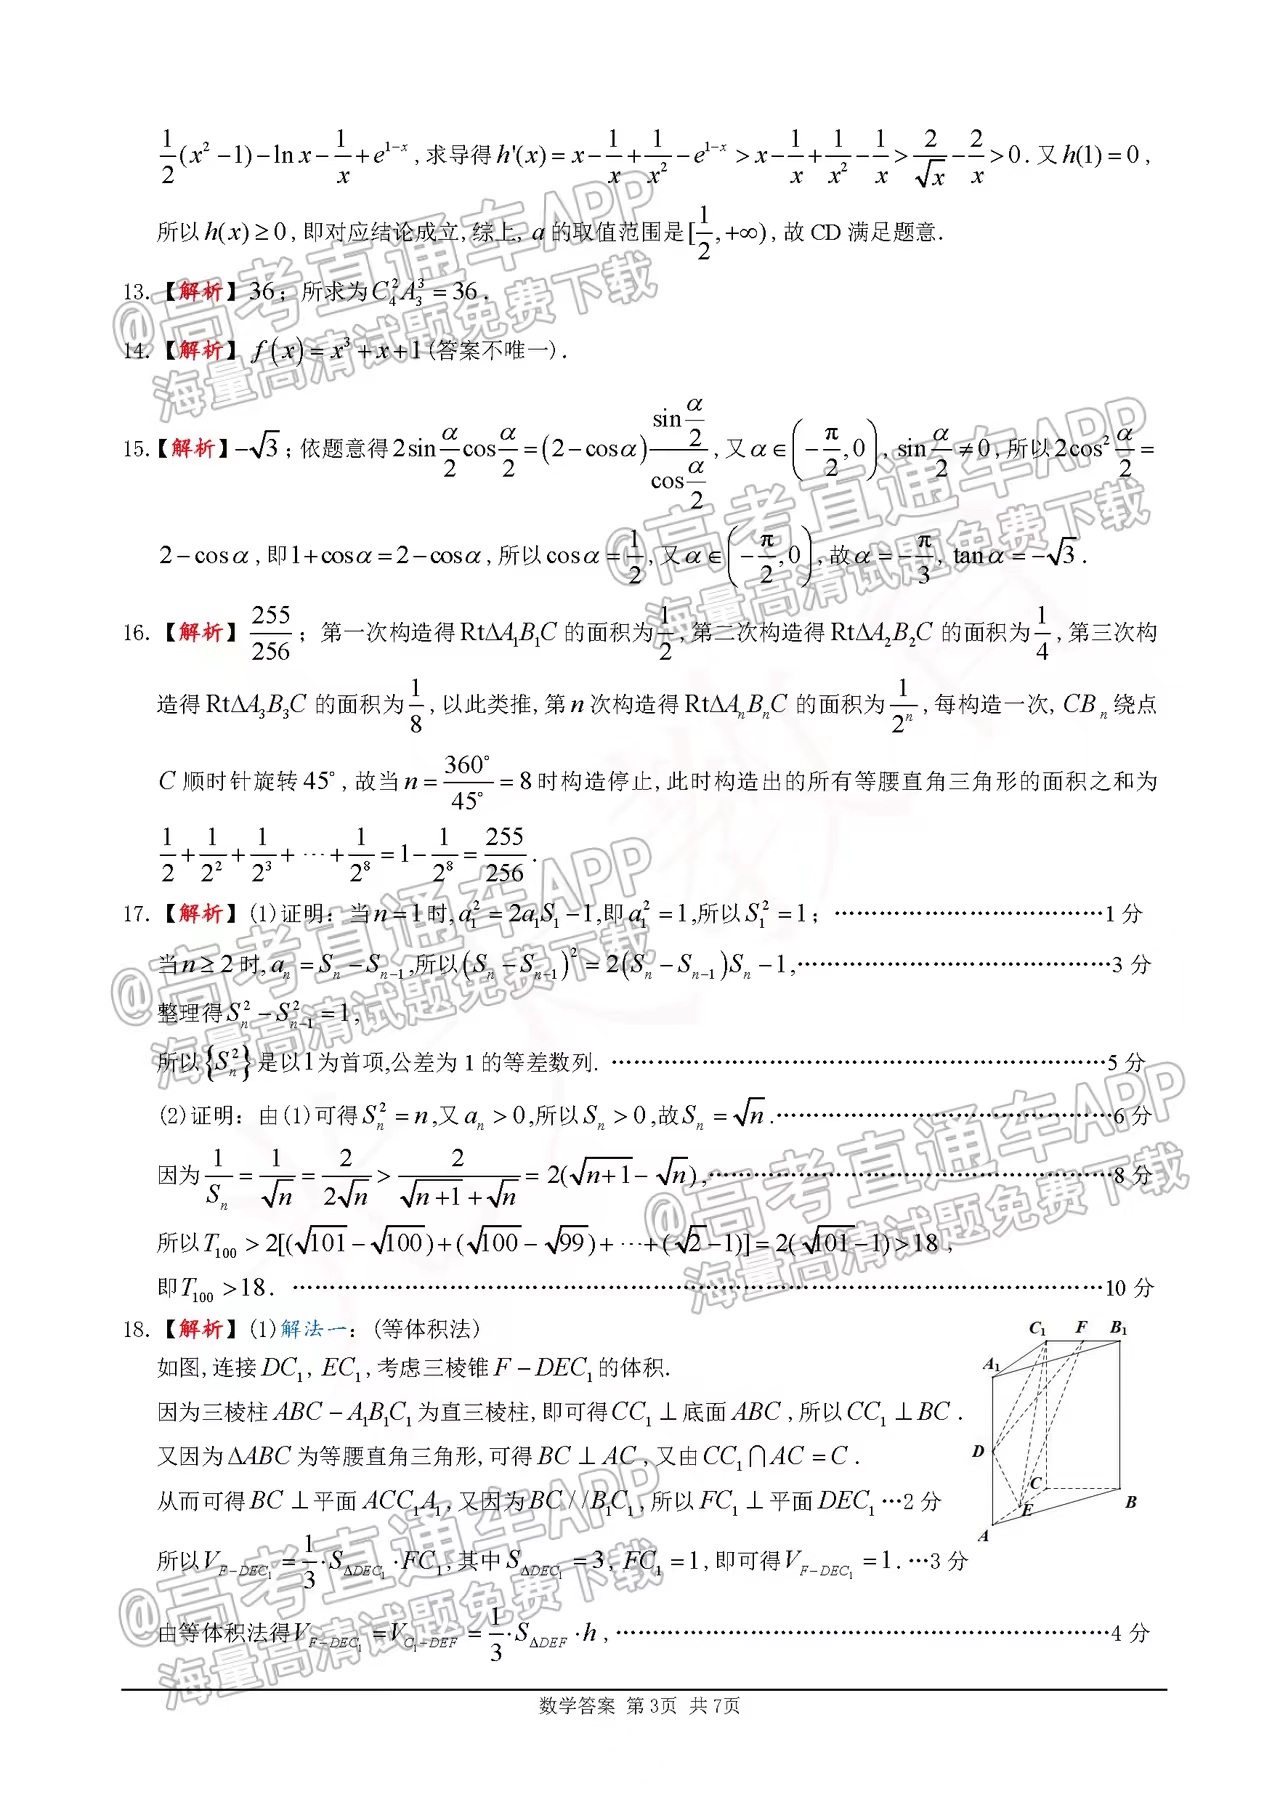 1/2(x²−1)−ln x−1/x+e^{1−x}，求导得h'(x)=x−1/x+1/x²−e^{1−x}>x−1/x+1/x²−1/x>2/√x−2/x>0．又h(1)=0，
所以h(x)≥0，即对应结论成立，综上，a的取值范围是[1/2,+∞)，故CD满足题意．
13.【解析】36；所求为C₄²A₃³=36．
14.【解析】f(x)=x³+x+1(答案不唯一)．
15.【解析】−√3；依题意得2sin α/2 cos α/2=(2−cosα) (sin α/2)/(cos α/2)，又α∈(−π/2,0)，sin α/2≠0，所以2cos² α/2=
2−cosα，即1+cosα=2−cosα，所以cosα=1/2，又α∈(−π/2,0)，故α=−π/3，tanα=−√3．
16.【解析】255/256；第一次构造得RtΔA₁B₁C的面积为1/2，第二次构造得RtΔA₂B₂C的面积为1/4，第三次构
造得RtΔA₃B₃C的面积为1/8，以此类推，第n次构造得RtΔAₙBₙC的面积为1/2ⁿ，每构造一次，CBₙ绕点
C顺时针旋转45°，故当n=360°/45°=8时构造停止，此时构造出的所有等腰直角三角形的面积之和为
1/2+1/2²+1/2³+⋯+1/2⁸=1−1/2⁸=255/256．
17.【解析】(1)证明：当n=1时，a₁²=2a₁S₁−1，即a₁²=1，所以S₁²=1；…………1分
当n≥2时，aₙ=Sₙ−Sₙ₋₁，所以(Sₙ−Sₙ₋₁)²=2(Sₙ−Sₙ₋₁)Sₙ−1，…………3分
整理得Sₙ²−Sₙ₋₁²=1，
所以{Sₙ²}是以1为首项，公差为1的等差数列．…………5分
(2)证明：由(1)可得Sₙ²=n，又aₙ>0，所以Sₙ>0，故Sₙ=√n．…………6分
因为1/Sₙ=1/√n=2/(2√n)>2/(√(n+1)+√n)=2(√(n+1)−√n)，…………8分
所以T₁₀₀>2[(√101−√100)+(√100−√99)+⋯+(√2−1)]=2(√101−1)>18，
即T₁₀₀>18．…………10分
18.【解析】(1)解法一：(等体积法)
如图，连接DC₁，EC₁，考虑三棱锥F−DEC₁的体积．
因为三棱柱ABC−A₁B₁C₁为直三棱柱，即可得CC₁⊥底面ABC，所以CC₁⊥BC．
又因为ΔABC为等腰直角三角形，可得BC⊥AC，又由CC₁∩AC=C．
从而可得BC⊥平面ACC₁A₁，又因为BC//B₁C₁，所以FC₁⊥平面DEC₁…2分
所以V_{F−DEC₁}=1/3·S_{ΔDEC₁}·FC₁，其中S_{ΔDEC₁}=3，FC₁=1，即可得V_{F−DEC₁}=1．…3分
由等体积法得V_{F−DEC₁}=V_{C₁−DEF}=1/3·S_{ΔDEF}·h，…………4分
C₁ F B₁
A₁
D
C
E
B
A
数学答案 第3页 共7页
@高考直通车APP
海量高清试题免费下载
@高考直通车APP
海量高清试题免费下载
@高考直通车APP
海量高清试题免费下载
@高考直通车APP
海量高清试题免费下载
@高考直通车APP
海量高清试题免费下载